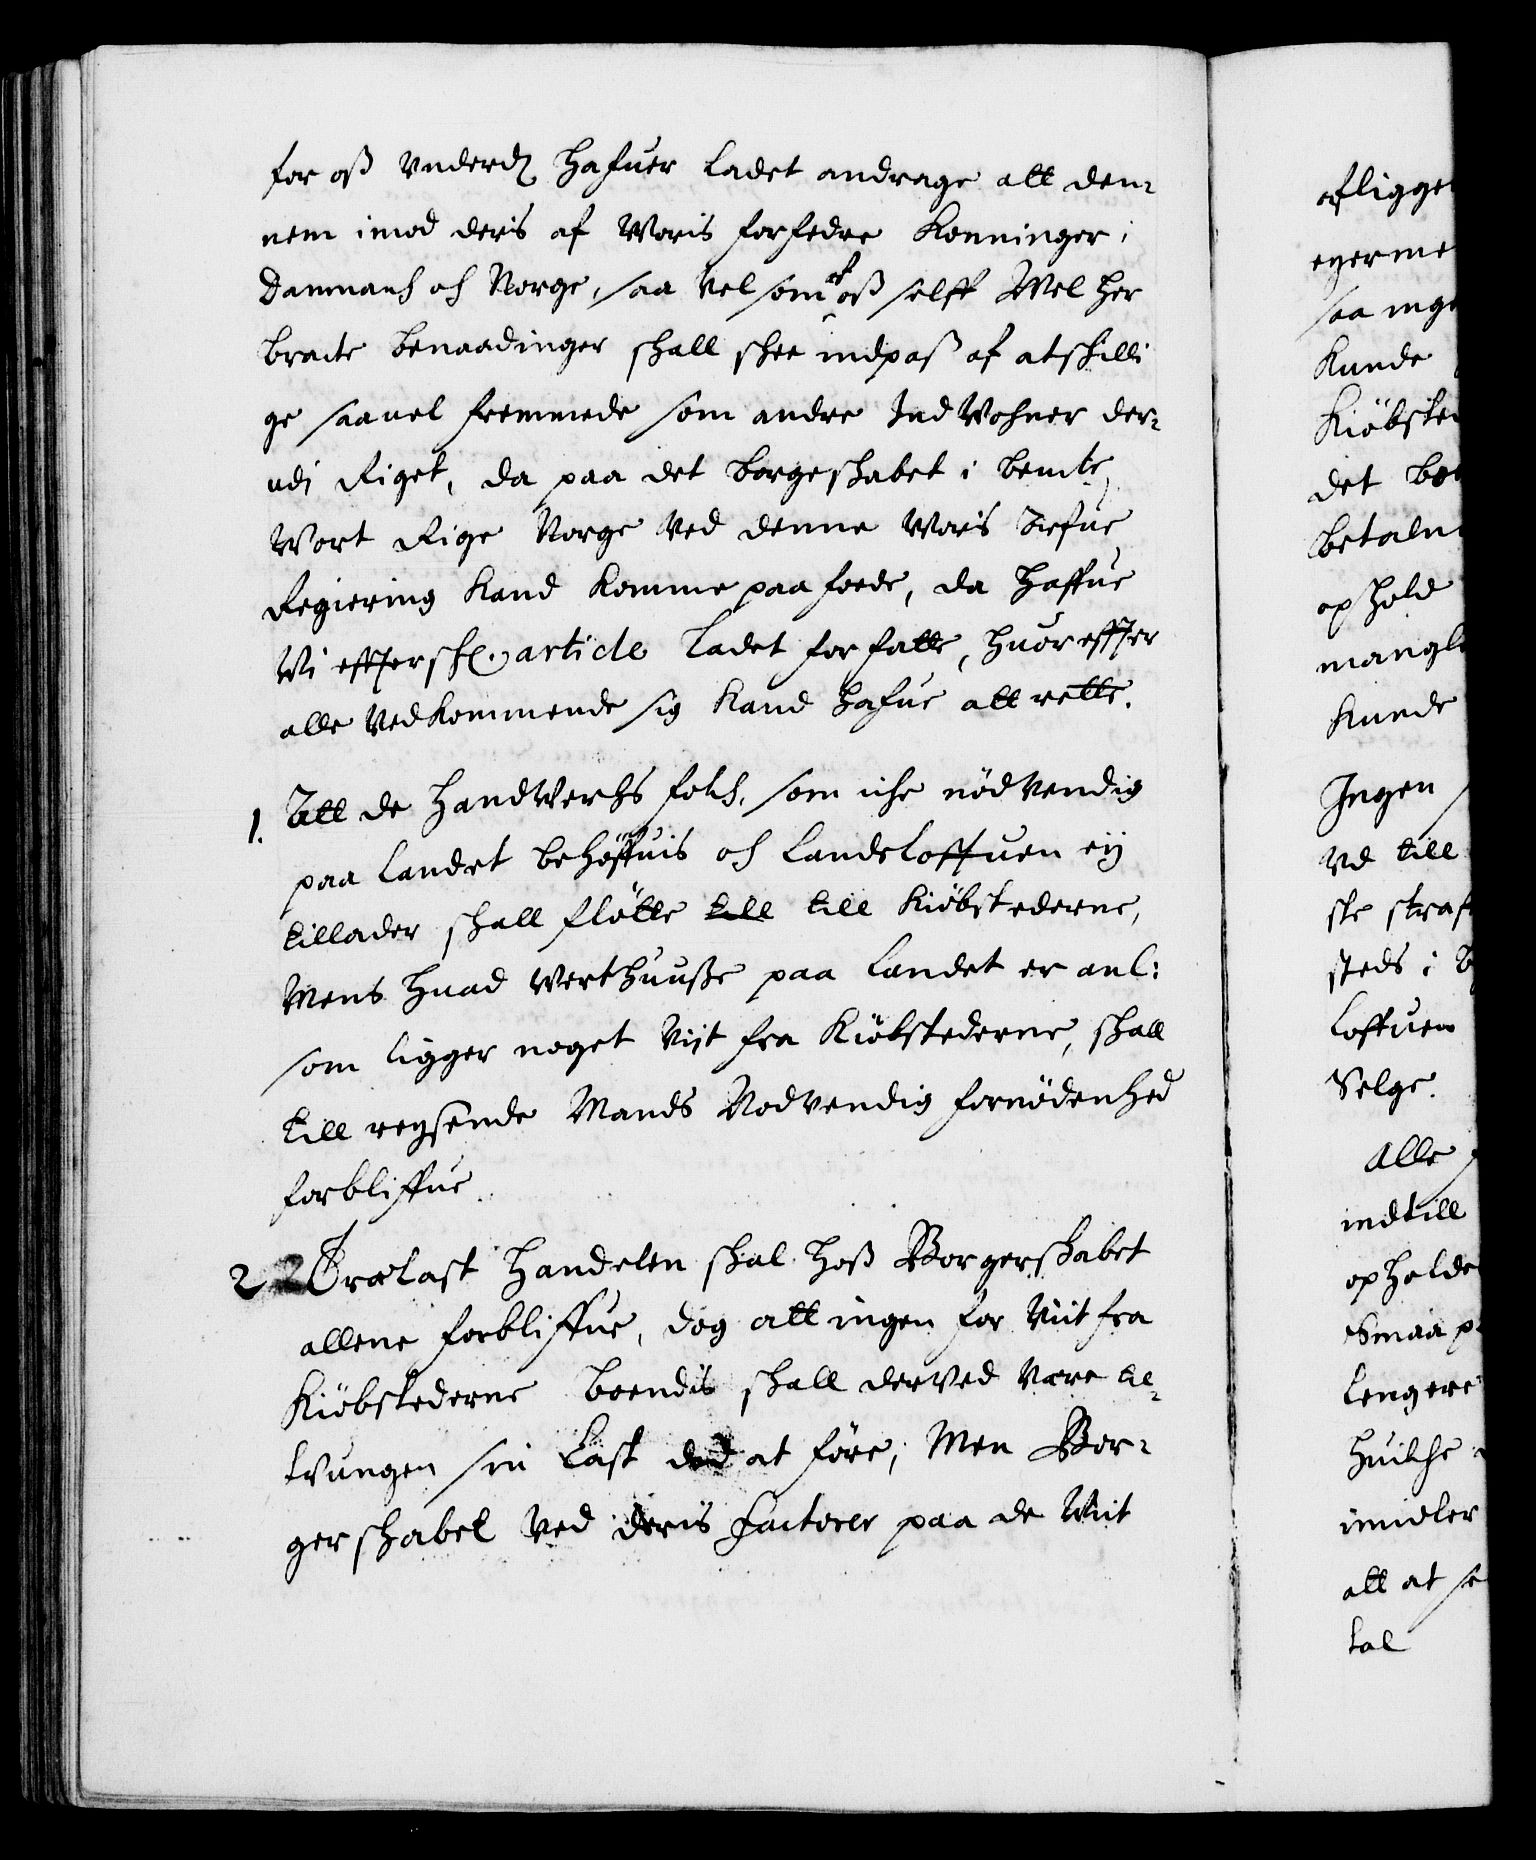 for oß underd hafuer ladet andrage att den¬
nem imod deris af Woris forfedre Konninger i
Danmarch och Norge, saa vel som af oß selff Wel her
bracte benaadinger shall shee indpas af atskilli
ge saauel fremmede som andre IndWohner der¬
udj Riget, da paa det borgeskabet i bemte
Wort Rige Norge ved denne Woris Arfue
Regiering kand komme paa foede, da haffue
Wi effterskl. article ladet forfatte, huor effter
alle Vedkommende sig kand hafue att rette.
1. Att de Handtwerchs folch, som iche nödvendig
paa Landet behöffuis och Landsloffuen eÿ
tillader shall flötte till till Kiöbstederne,
Mens huad Wertshuuße paa Landet er anl:
som ligger noget Viit fra Kiöbstederne, shall
till reysende Mands Nodvendig fornödenhed
forbliffue
2 Trælast Handelen skal hoß Borgerskabet
allene forbliffue, dog att ingen for Viit fra
Kiöbstederne boendis shall derved være til¬
tvungen sin Last did at före, Men Bor¬
gerskabet Ved deris factorer paa de Wiit
afligge
egerme
saa inge
Kunde
Kiöbsted
det bor
betaln
ophold
mangle
kunde
Ingen
Vd till
ste straf
steds i B
loffuen
Selge.
Alle
indtill
opholde
Smaa p
lengere
huilche
imidler
att at se
tal